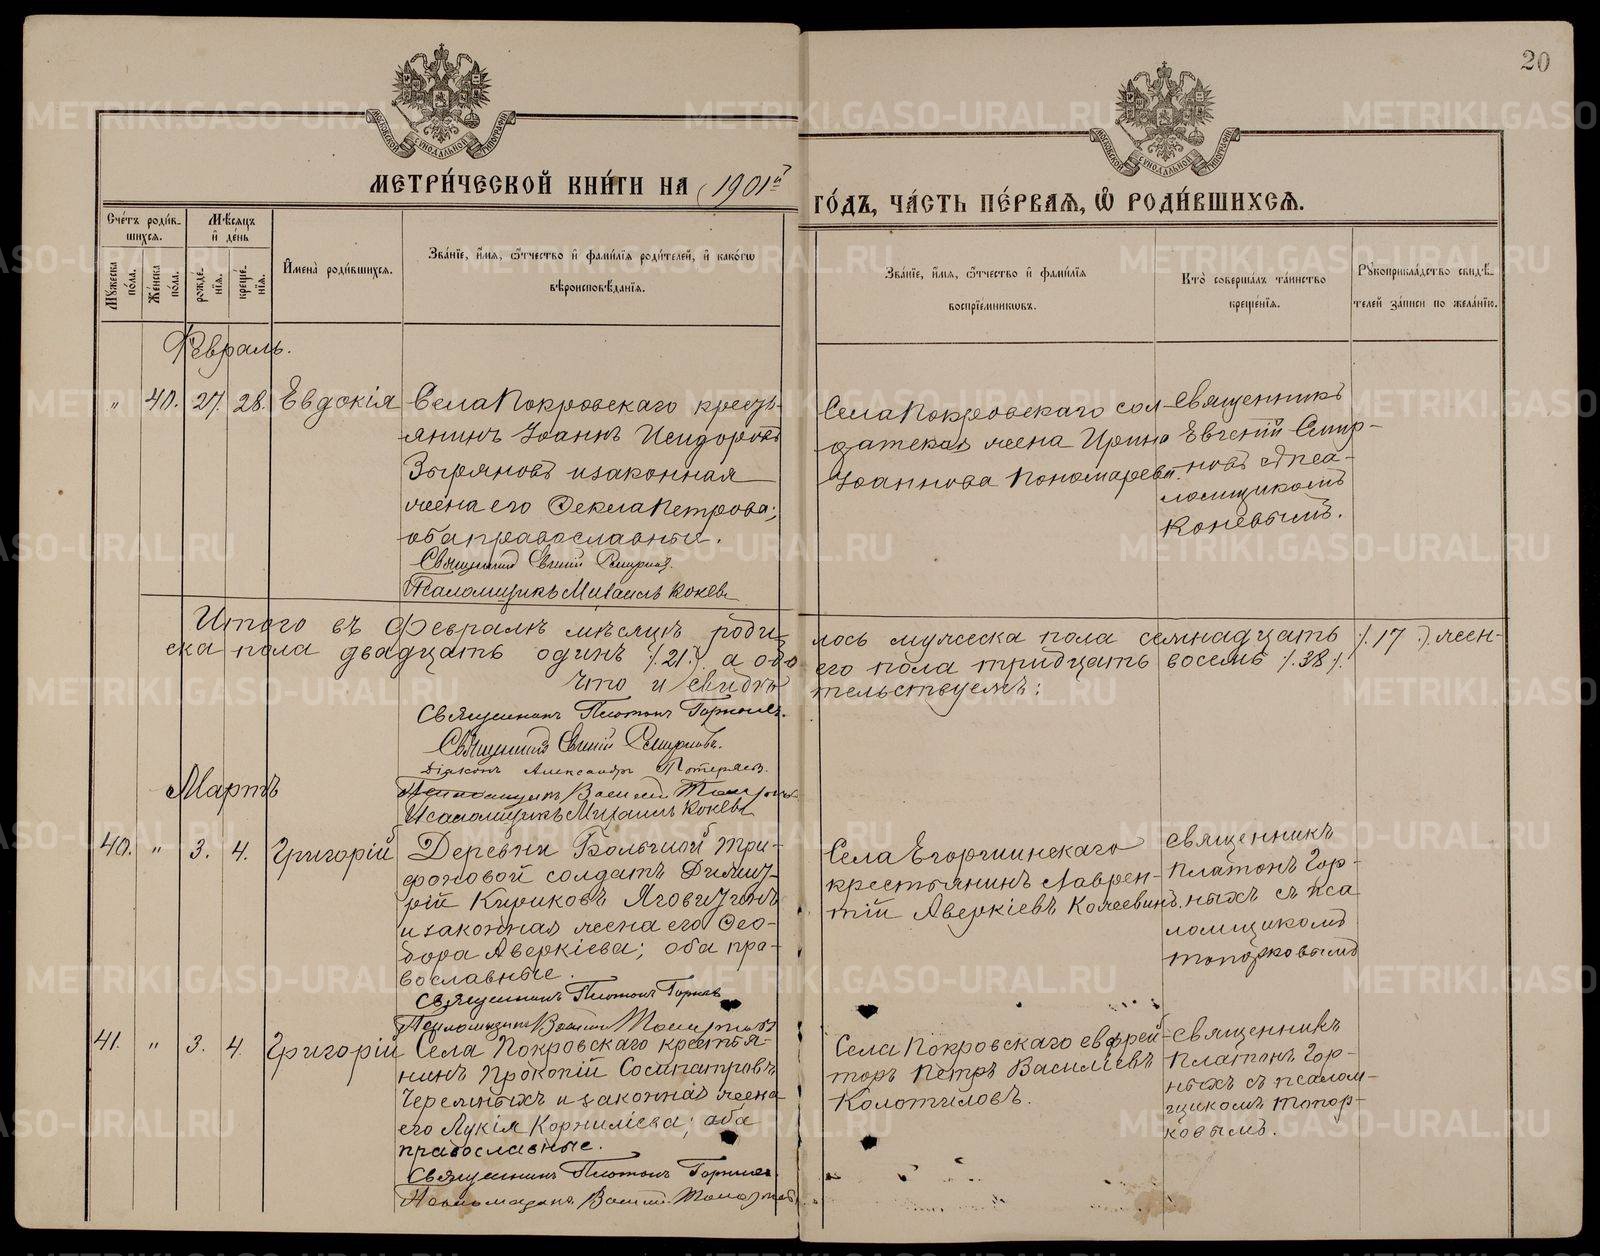 20
МОСКОВСКОЙ СѴНОДАЛЬНОЙ ТИПОГРАФІИ
МОСКОВСКОЙ СѴНОДАЛЬНОЙ ТИПОГРАФІИ
МЕТРИ́ЧЕСКОЙ КНИ́ГИ НА 1901й
ГО́ДЪ, ЧА́СТЬ ПЕ́РВАЯ, Ѽ РОДИ́ВШИХСЯ.
Сче́тъ роди́в-
шихся.
Мѣ́сяцъ
и де́нь
Мꙋжеска по́ла.
Же́нска по́ла.
рожде́нія.
креще́нія.
Имена̀ роди́вшихся.
Зва́ніе, и́мя, ѻ҆́тчество и фами́лія роди́телей, и како́гѡ
вѣроисповѣ́данія.
Зва́ніе, и́мя, ѻ҆́тчество и фами́лія
воспріе́мникѡвъ.
Кто̀ соверша́лъ та́инство
креще́нія.
Рꙋкоприкла́дство свидѣ́-
телей за́писи по жела́нію.
Февраль.
" 40. 27. 28. Евдокія
Села Покровскаго кресть-
янинъ Іоаннъ Исидоровъ
Зыряновъ и законная
жена его Ѳекла Петрова;
оба православные.
Священникъ Евгеній Смирновъ.
Псаломщикъ Михаилъ Коневъ
Села Покровскаго сол-
датская жена Ирина
Іоаннова Пономарева.
Священникъ
Евгеній Смир-
новъ съ пса-
ломщикомъ
Коневымъ.
Итого въ Февралѣ мѣсяцѣ роди
лось мужеска пола семнадцать /. 17 ./ жен-
ска пола двадцать одинъ /. 21 ./. а обо
его пола тридцать восемь /. 38 /.
что и свидѣ
тельствуемъ:
Священникъ Платонъ Горныхъ.
Священникъ Евгеній Смирновъ.
Діаконъ Александръ Потеряевъ.
Псаломщикъ Василій Топорковъ
Псаломщикъ Михаилъ Коневъ
Мартъ
40. " 3. 4. Григорій
Деревни Большой Три-
фоновой солдатъ Димит-
рій Кириковъ
и законная жена его Ѳео-
дора Аверкіева; оба пра-
вославные.
Священникъ Платонъ Горныхъ
Псаломщикъ Василій Топорковъ
Села Егоршинскаго
крестьянинъ Лаврен-
тій Аверкіевъ Кожевинъ.
Священникъ
Платонъ Гор-
ныхъ съ пса
ломщикомъ
Топорковымъ
41. " 3. 4. Григорій
Села Покровскаго крестья-
нинъ Прокопій Сосипатровъ
Черемныхъ и законная жена
его Лукія Корниліева; оба
православные.
Священникъ Платонъ Горныхъ.
Псаломщикъ Василій Топорковъ
Села Покровскаго ефрей-
торъ Петръ Василіевъ
Колотиловъ.
Священникъ
Платонъ Гор-
ныхъ съ псалом-
щикомъ Топор-
ковымъ.
METRIKI.GASO-URAL.RU